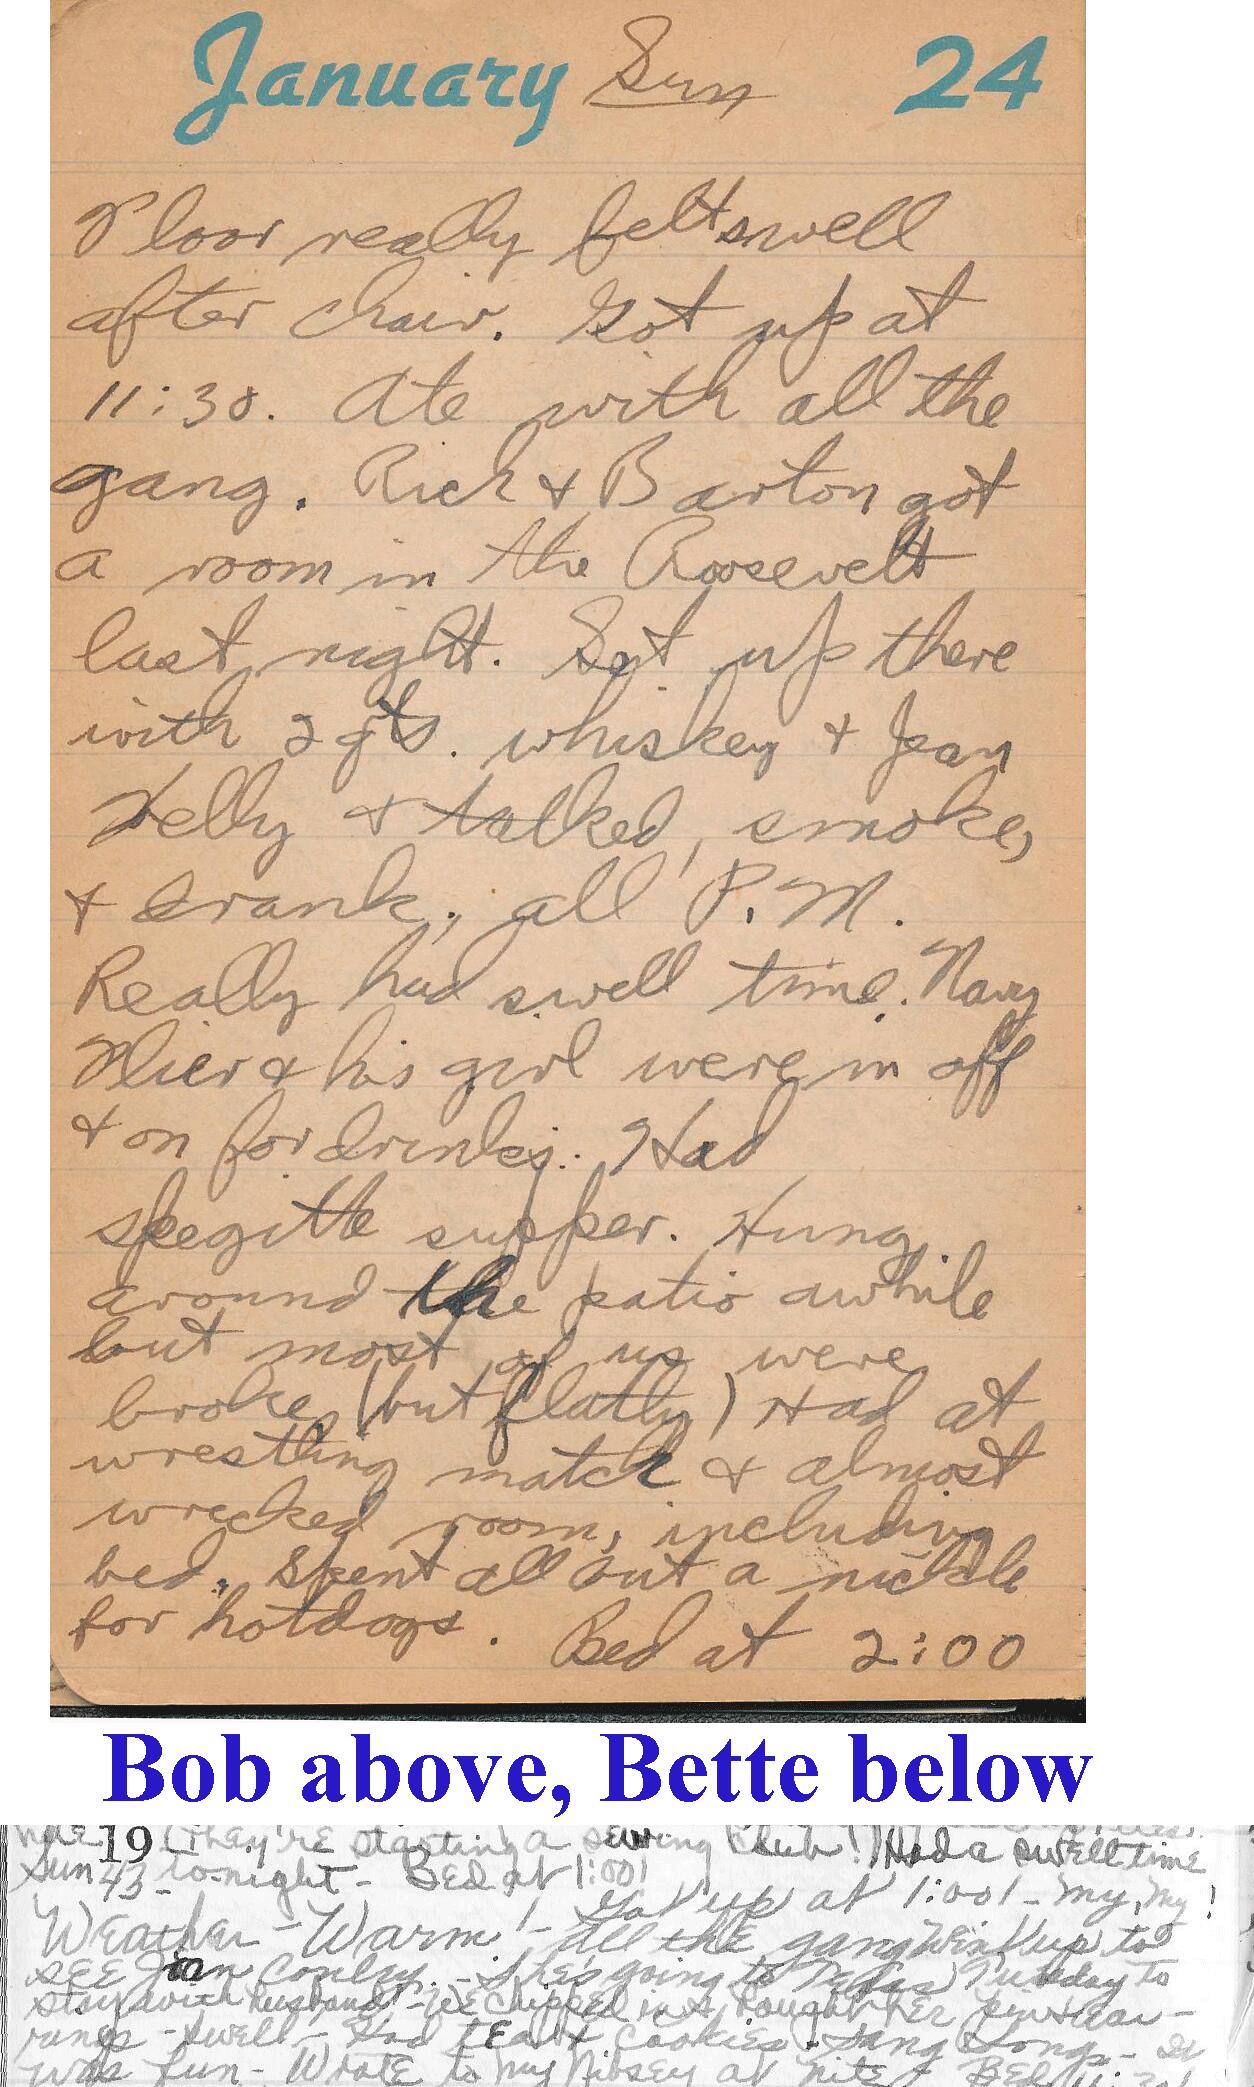 January Sun 24
Floor really felt swell
after chair. Got up at
11:30. Ate with all the
gang. Rich & Barton got
a room in the Roosevelt
last night. Sat up there
with 2 qts. whiskey & Jean
Kelly & talked, smoke,
& drank, all P.M.
Really had swell time. Navy
flier & his girl were in off
& on for drinks. Had
spegitte supper. Hung
around the patio awhile
but most of us were
broke (but flatly) Had at
wrestling match & almost
wrecked room, including
bed. Spent all but a nickle
for hotdogs. Bed at 2:00
Bob above, Bette below
19 (they're starting a sewing club!) Had a swell time
Sun 43 - to-night - Bed at 1:00!
Got up at 1:00! - My, My!
Weather - Warm! - All the gang went up to
see Jean Conley. - She's going to Tuesday to
stay with husband! - We chipped in & bought her pin & ear-
rings - swell - Had tea & cookies - Sang songs -
was fun - Wrote to my at nite - Bed